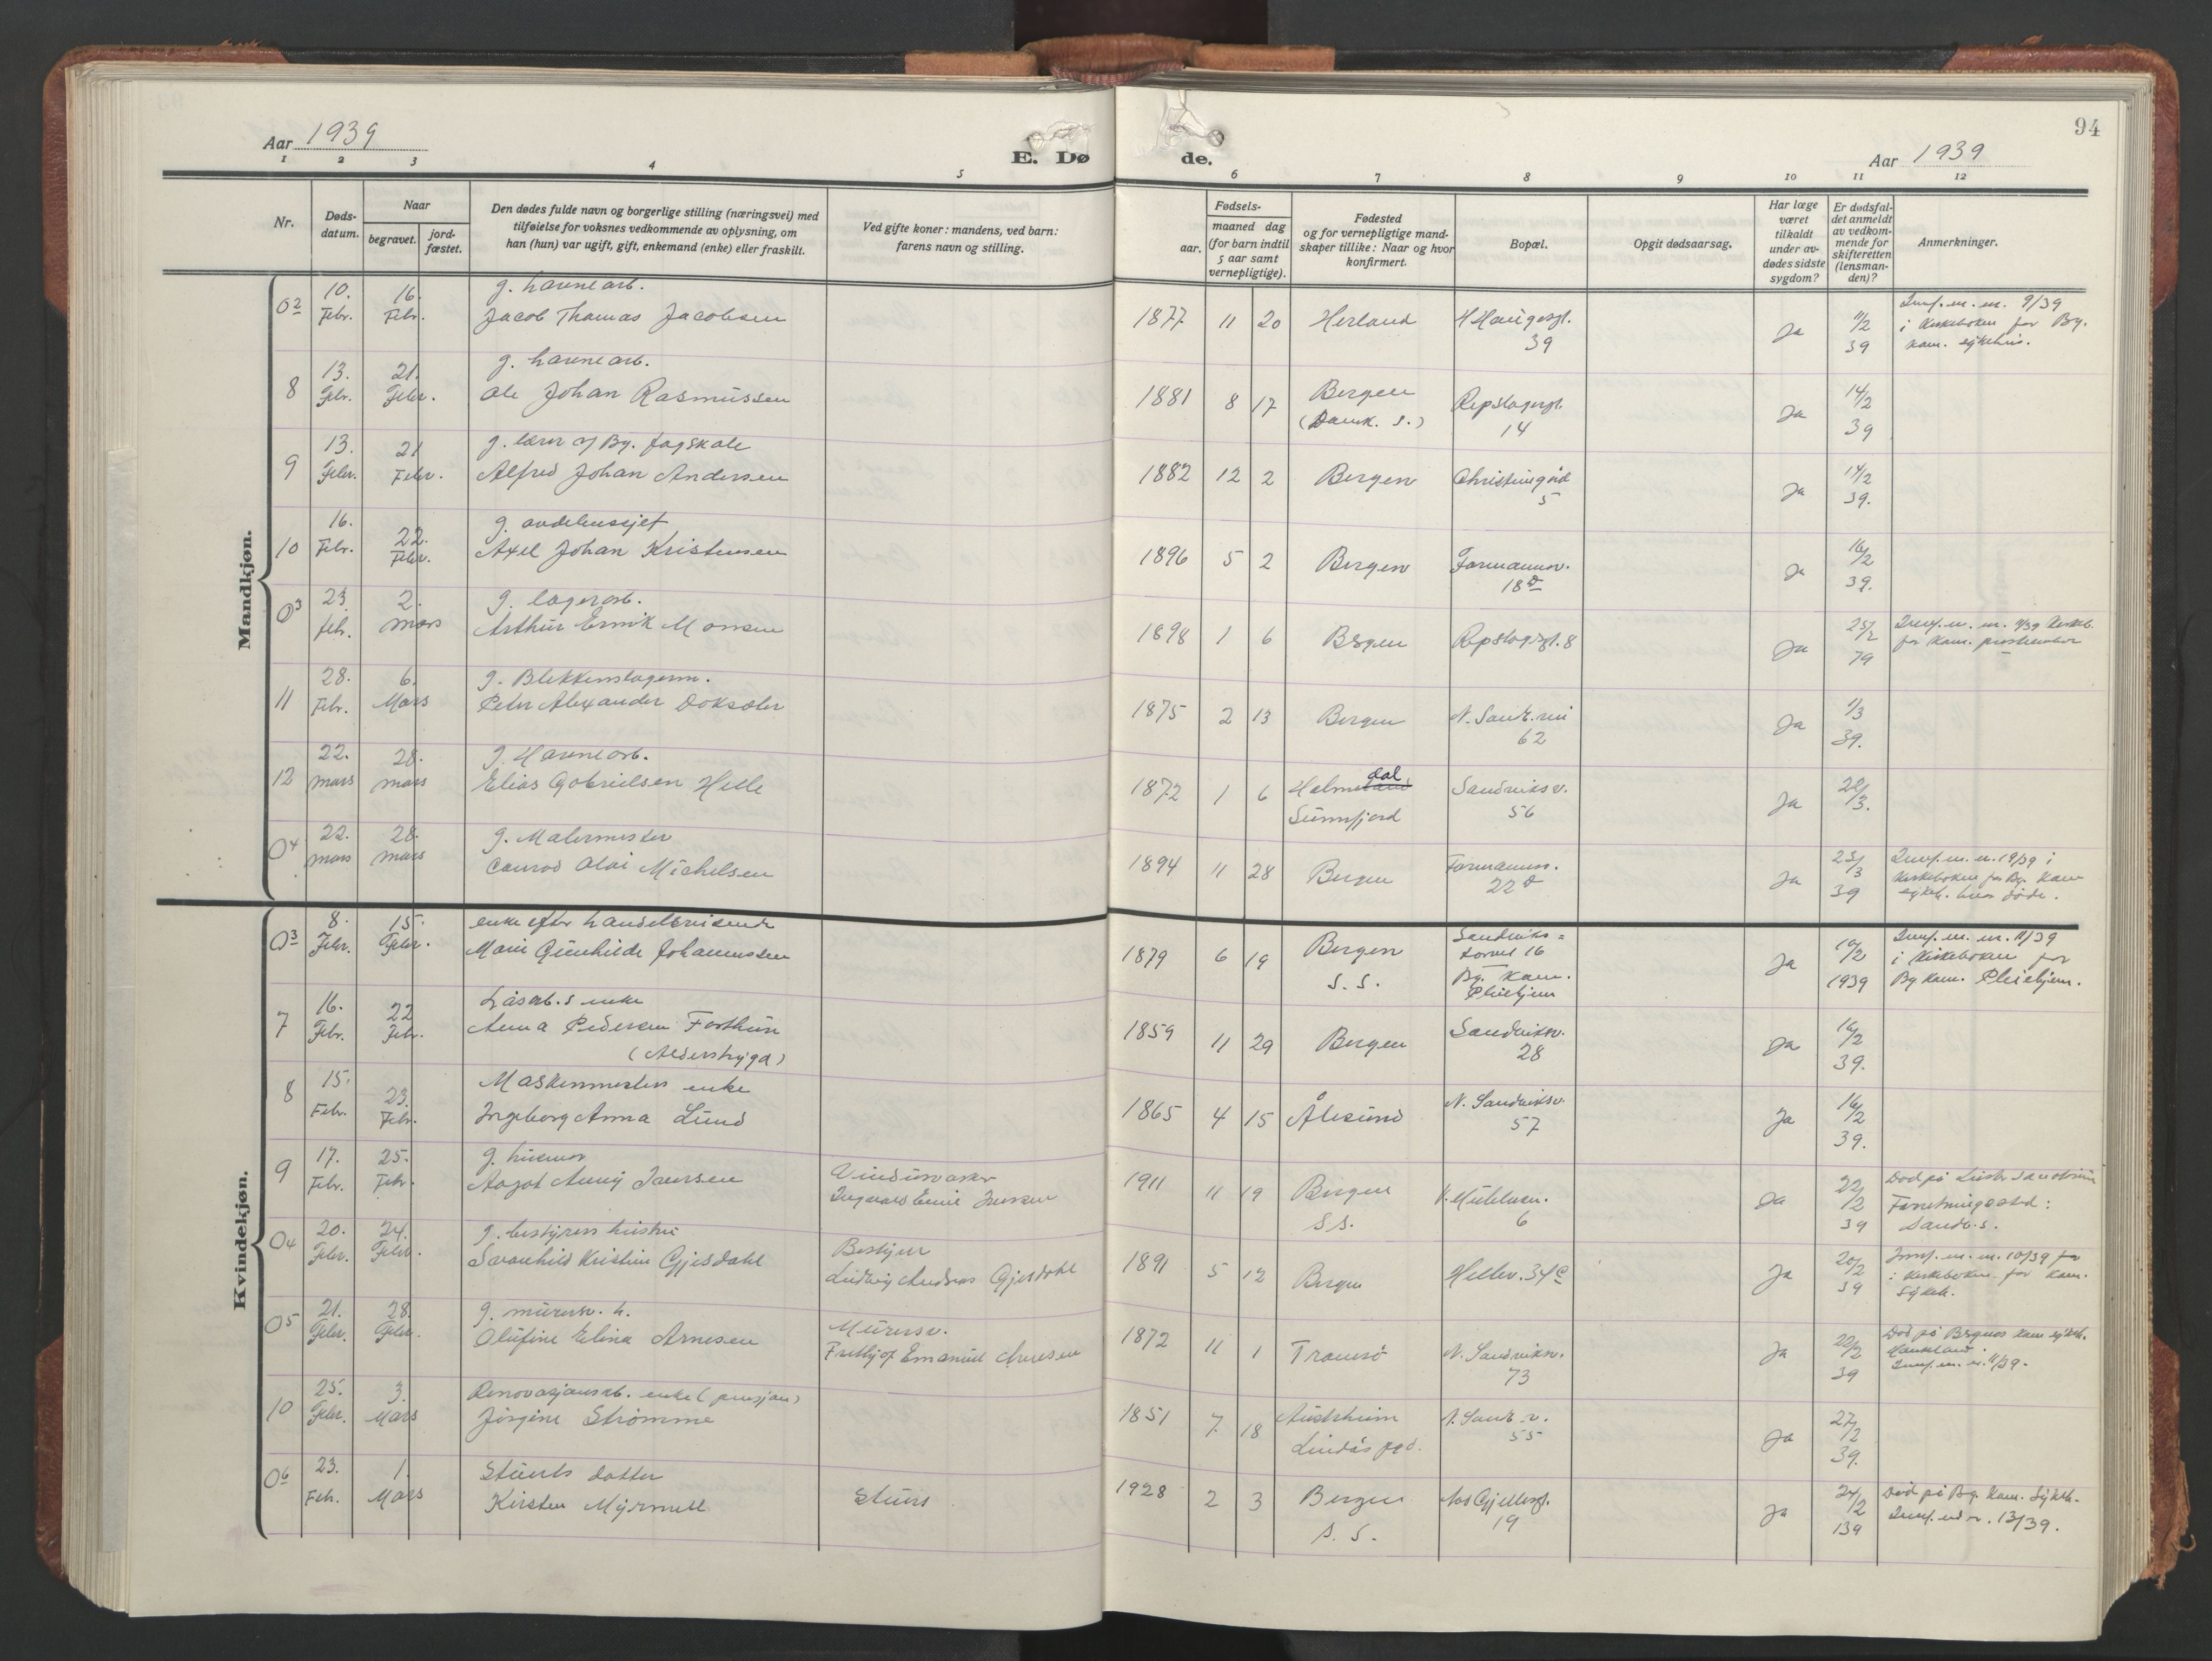 94
Aar 1939
E. Dø de.
Aar 1939
1 2 3 4 5 6 7 8 9 10 11 12
Nr.
Døds-
datum.
Naar
begravet.
jord-
fæstet.
Den dødes fulde navn og borgerlige stilling (næringsvei) med
tilføielse for voksnes vedkommende av oplysning, om
han (hun) var ugift, gift, enkemand (enke) eller fraskilt.
Ved gifte koner: mandens, ved barn:
farens navn og stilling.
Fødsels-
aar.
maaned dag
(for barn indtil
5 aar samt
vernepligtige).
Fødested
og for vernepligtige mand-
skaper tillike: Naar og hvor
konfirmert.
Bopæl.
Opgit dødsaarsag.
Har læge
været
tilkaldt
under av-
dødes sidste
sygdom?
Er dødsfal-
det anmeldt
av vedkom-
mende for
skifteretten
(lensman-
den)?
Anmerkninger.
Mandkjøn.
02 10. Febr. 16. Febr. g. havnearb.
Jacob Thomas Jacobsen
1877 11 20 Herland H Haugesgt. 39 Ja 11/2 39 9/39
i kirkeboken for Bg.
kom. sykehus.
8 13. Febr. 21. Febr. g. havnearb.
Ole Johan Rasmussen
1881 8 17 Bergen (Domk. s.) Repslagergt. 14 Ja 14/2 39
9 13. Febr. 21 Febr. g. lærer v/ Bg. fagskole
Alfred Johan Andersen
1882 12 2 Bergen 5 Ja 14/2 39.
10 16. Febr. 22. Febr. g.
Axel Johan Kristensen
1896 5 2 Bergen Formannsv. 18 Ja 16/2 39.
03 23. feb. 2. mars g. lagerarb.
Arthur Monsen
1898 1 6 Bergen Repslagergt. 8 Ja 25/2
11 28. Febr. 6. Mars g. Blikkenslagerm.
Peter Alexander Doksæter
1875 2 13 Bergen N. Sandv.vei 62 Ja 1/3 39.
12 22. mars 28. mars g. Havnearb.
Elias Gabrielsen Helle
1872 1 6 Holmedal
Sunnfjord Sandviksv. 56 Ja 22/3.
04 22. mars 28. mars g. Malermester
Conrad Olai Michelsen
1894 11 28 Bergen Formannsv. 22 Ja 23/3 39 19/39 i
kirkeboken for Bg. kom
sykeh. hvor døde.
Kvindekjøn.
03 8. Febr. 15. Febr. enke efter handelsreisende
Marie Gunhilde Johannessen
1879 6 19 Bergen S. S. Sandviks=
torvet 16
Bg. kom.
Pleiehjem Ja 10/2 1939 11/39
i kirkeboken for
Bg kom. Pleiehjem.
7 16. Febr. 22 Febr. Løsarb.s enke
Anna Pedersen Forthun
(Alderstrygd)
1859 11 29 Bergen Sandviksv. 28 Ja 16/2 39.
8 15. Febr. 23. Febr. Maskinmesters enke
Ingeborg Anna Lund
1865 4 15 Ålesund N. Sandviksv. 57 Ja 16/2 39.
9 17. Febr. 25. Febr. g. husmor
Aagot Jensen
Vindusvasker
Ingvard Emil Jensen
1911 11 19 Bergen S.S. 6 Ja 22/2 39 Død på Luster Sanatorium
Forretningssted:
Sandv. s.
04 20. Febr. 24. Febr. g. bestyrers hustru
Svanhild Kristine Gjesdahl
Bestyrer
Ludvig Andreas Gjesdahl
1891 5 12 Bergen Hellev. 34c Ja 20/2 39 10/39
i kirkeboken for kom.
sykeh.
05 21. Febr. 28. Febr. g. murersv. h.
Olufine Elina Arnesen
Murersv.
Fridtjof Emanuel Arnesen
1872 11 1 Tromsö N. Sandviksv. 73 Ja 22/2 39 Død på Bergens kom sykeh.
Haukeland.
11/39.
10 25. Febr. 3. Mars Renovasjonsarb. enke (pensjon)
Jørgine Strømme
1851 7 18 Austrheim
Lindås N. Sandv. v. 55 Ja 27/2 39.
06 23. Feb. 1. Mars Stuerts datter
Kirsten Myrmell
Stuert
1928 2 3 Bergen S. S. 19 Ja 24/2 139 Død på Bg. kom. Sykeh.
13/39.